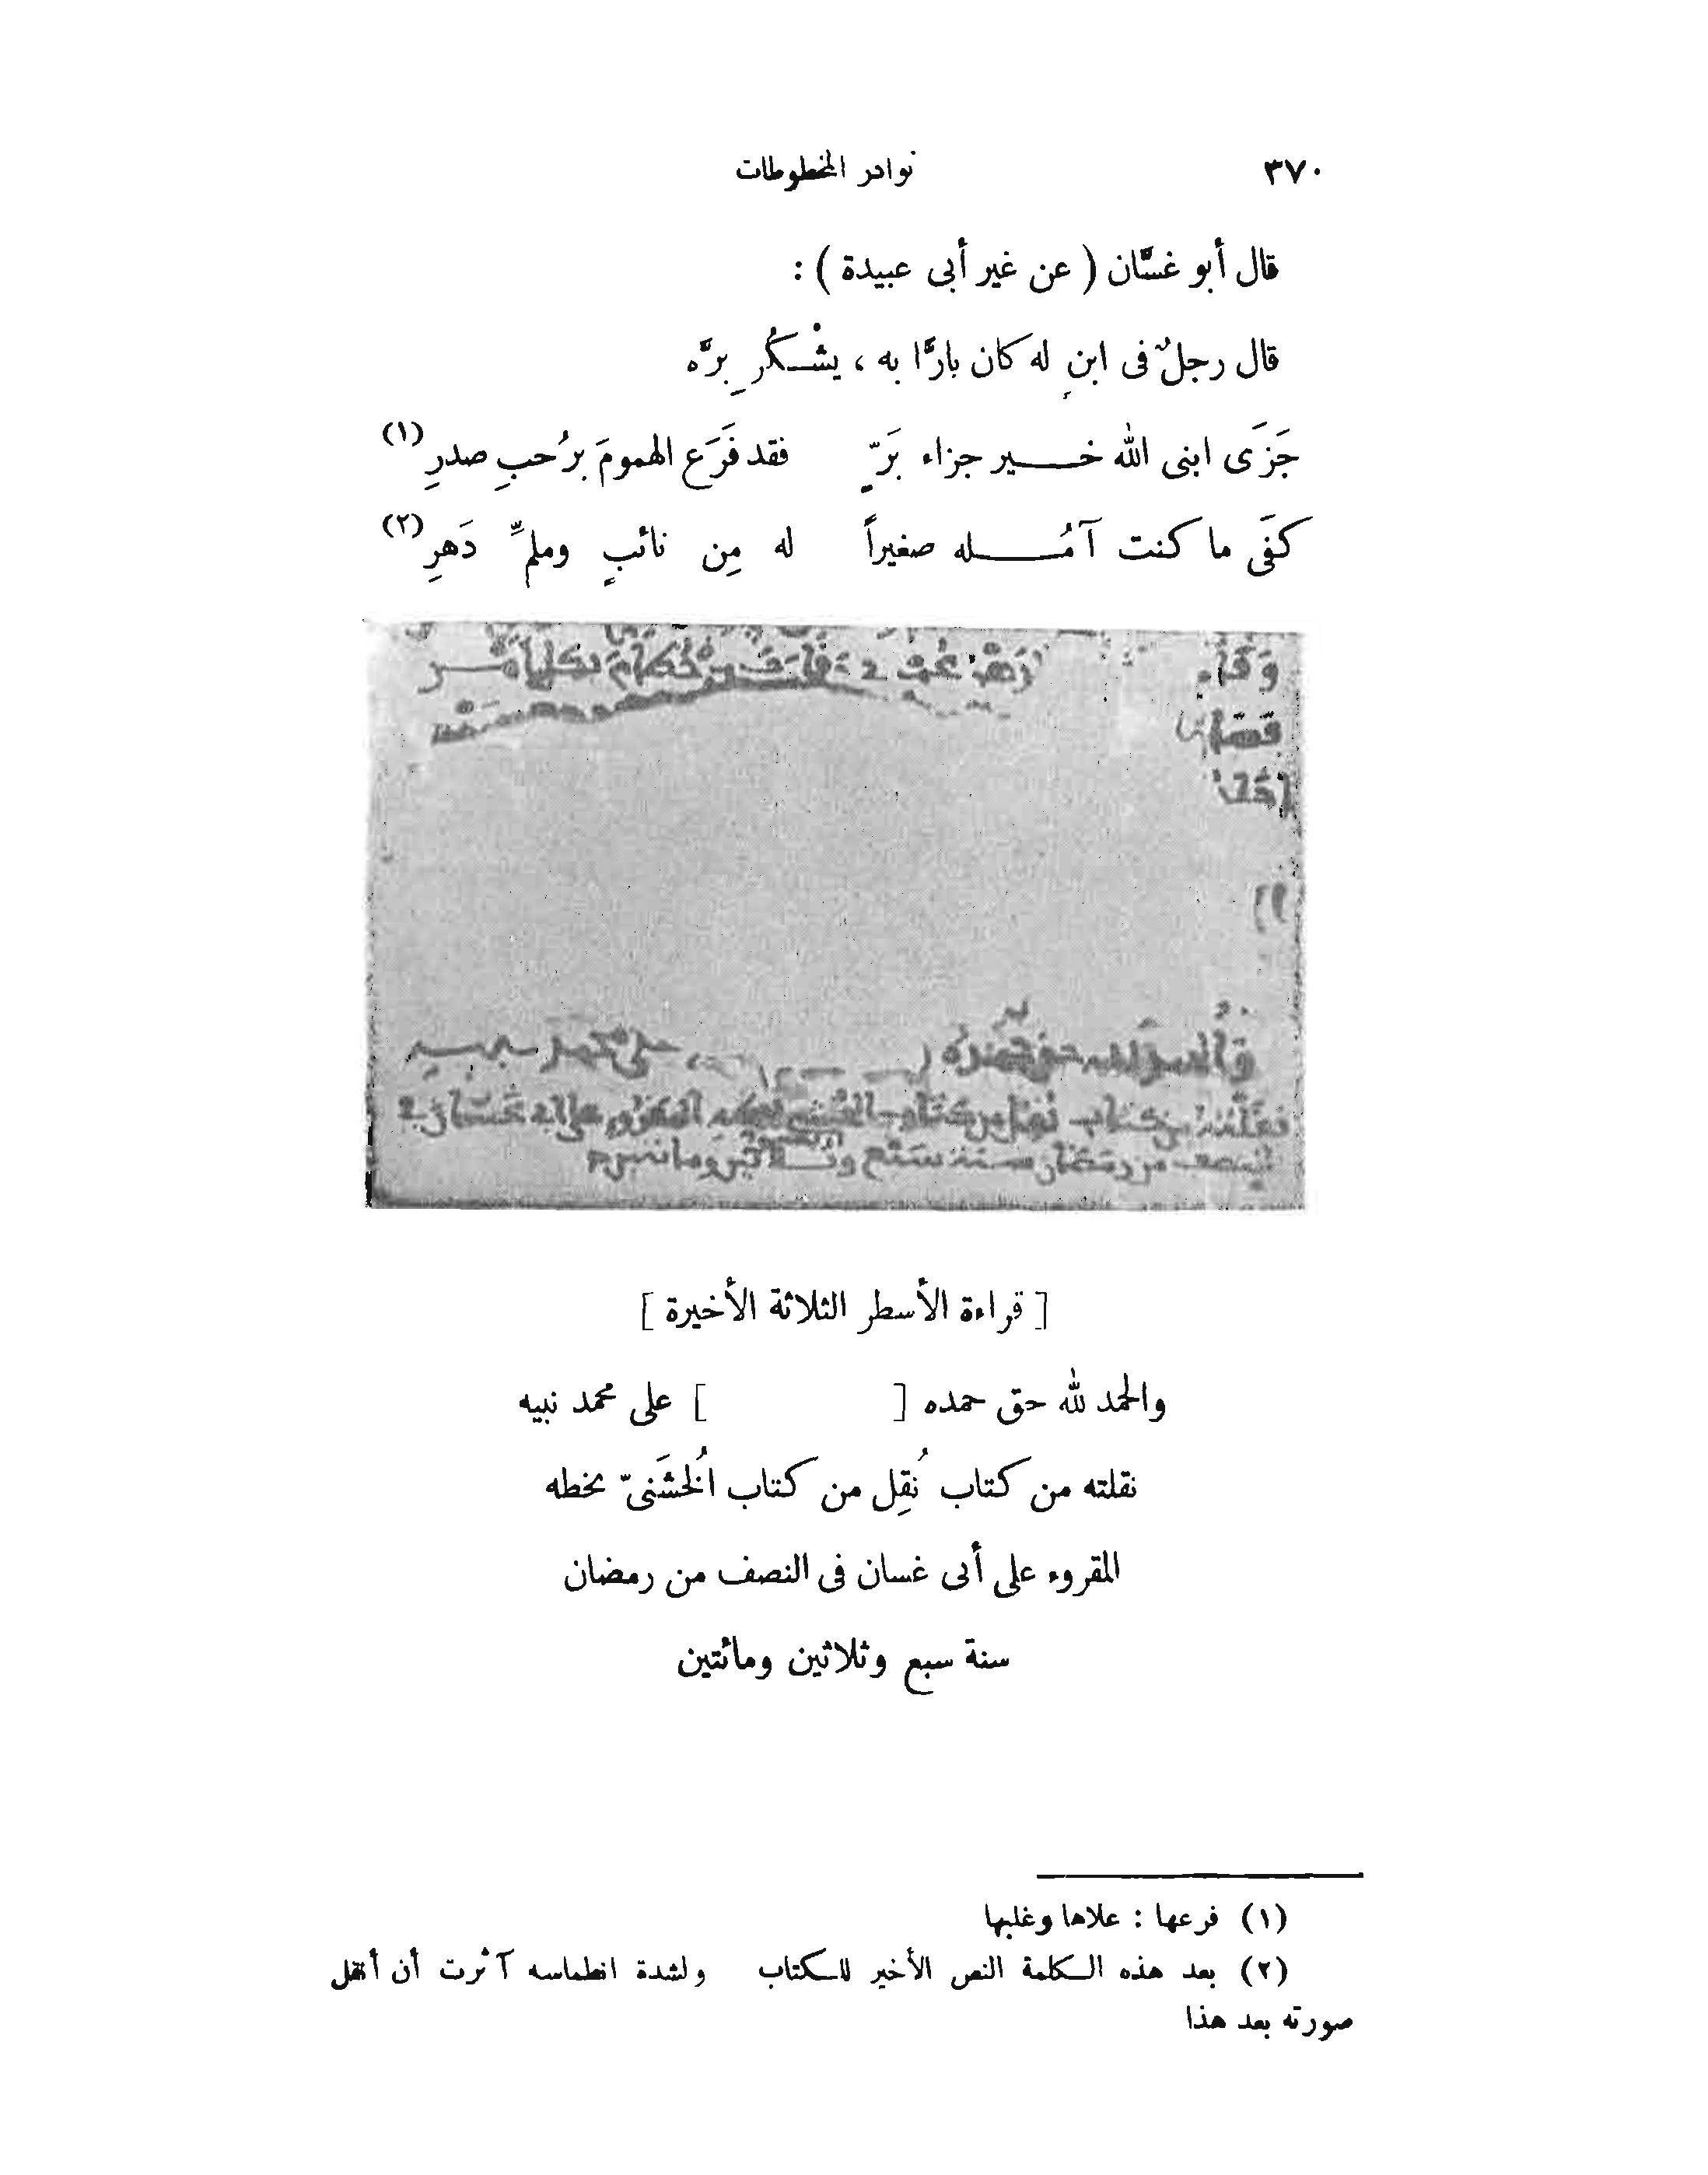 ٣٧٠ نوادر المخطوطات
قال أبو غسَّان ( عن غير أبى عبيدة ) :
قال رجلٌ فى ابنٍ له كان بارًّا به ، يشْكُر بِرَّه
جَزَى ابنى الله خير جزاء بَرٍّ فقد فَرَع الهمومَ برُحبِ صدرِ (١)
كفَى ما كنت آمُله صغيراً له مِن نائبٍ وملمِّ دَهرِ (٢)
[ قراءة الأسطر الثلاثة الأخيرة ]
والحمد لله حق حمده [ ] على محمد نبيه
نقلته من كتاب نُقِل من كتاب الُخشَنىّ بخطه
المقروء على أبى غسان فى النصف من رمضان
سنة سبع وثلاثين ومائتين
(١) فرعها : علاها وغلبها
(٢) بعد هذه الكلمة النص الأخير للكتاب ولشدة انطماسه آثرت أن أنقل
صورته بعد هذا